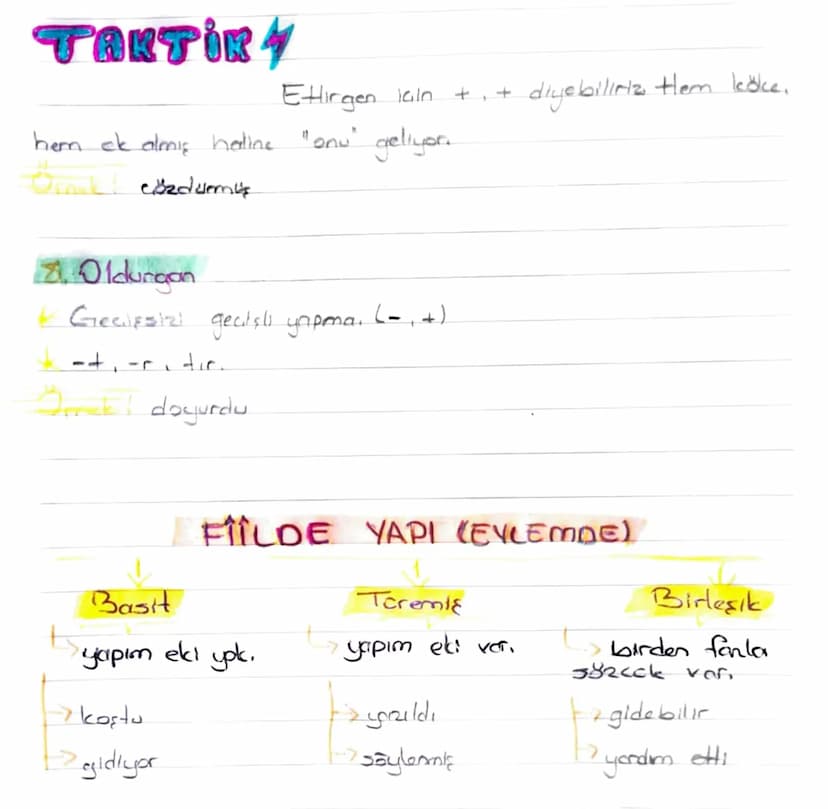 TAKTİK
Ettirgen için +, + diyebiliriz. Hem köke,
hem ek almış haline "onu" geliyor.
Örnek! çözdürmüş
8. Oldurgan
Geçişsizi geçişli yapma. (-, +)
-t, -r, tır.
Örnek! doyurdu
FİİLDE YAPI (EYLEMDE)
Basit Türemiş Birleşik
yapım eki yok. yapım eki var. birden fazla
sözcük var.
koştu yazıldı gidebilir
gidiyor söylenmiş yardım etti